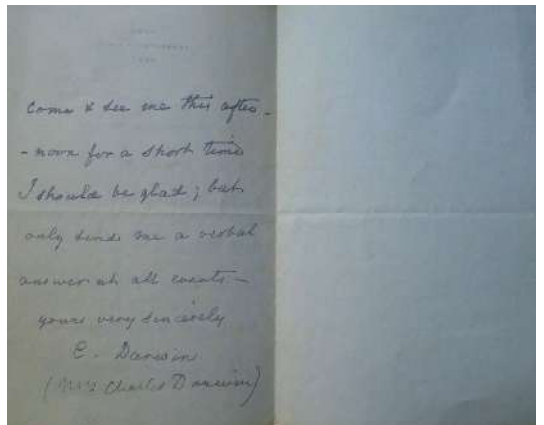 come & see me this after-
-noon for a short time
I should be glad; but
only send me a verbal
answer at all events —
yours very sincerely
E. Darwin
(Mrs Charles Darwin)